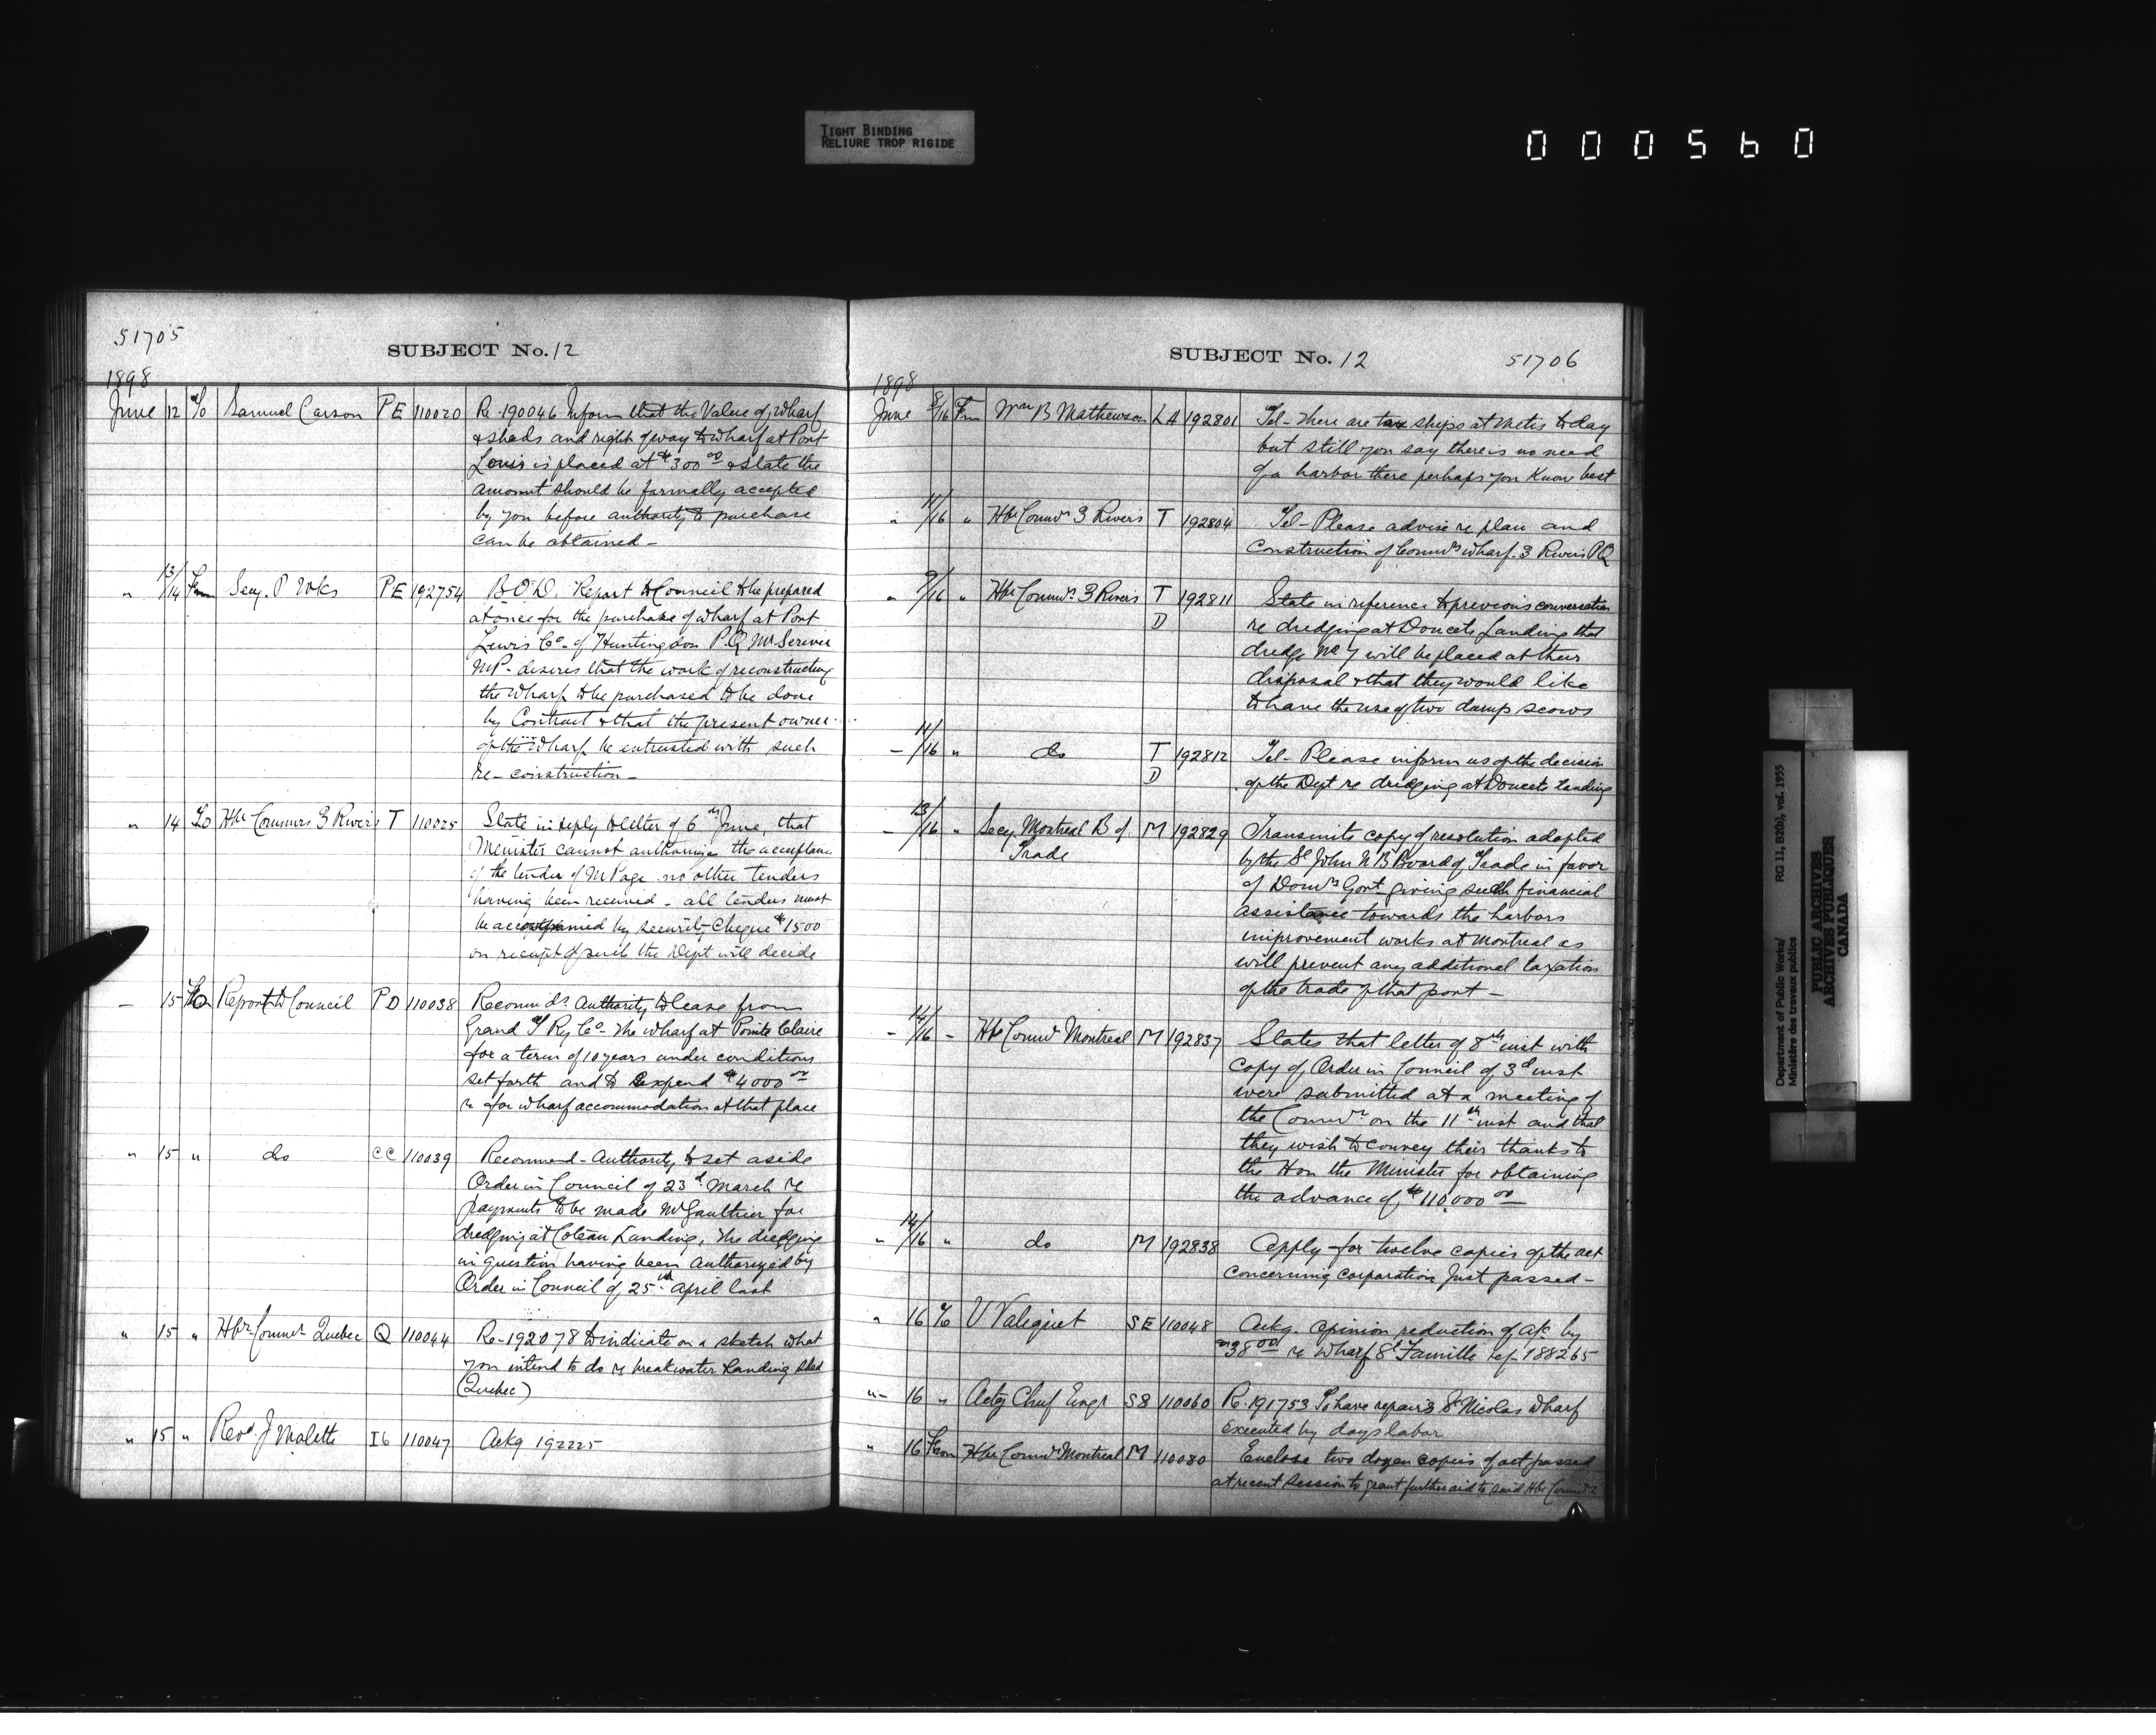 TIGHT BINDING
RELIURE TROP RIGIDE
000560
51705
SUBJECT No. 12
1898
June 12 To Samuel Carson PE 110020 Re 190046 Inform that the Value of Wharf
& sheds and right of way to wharf at Port
Louis is placed at $300 00 & state the
amount should be formally accepted
by you before authority to purchase
can be obtained -
" 13/14 From Secy. P Wks PE 192754 B.O.D. Report to Council to be prepared
at once for the purchase of wharf at Port
Lewis Co. of Huntingdon P.Q. Mr Scriver
M.P. desires that the work of reconstructing
the wharf to be purchased to be done
by Contract & that the present owner
of the Wharf be entrusted with such
re-construction -
" 14 To Hbr Commrs 3 Rivers T 110025 State in reply to letter of 6th June, that
Minister cannot authorize the acceptance
of the tender of Mr Page no other tenders
having been received - all tenders must
be accompanied by security Cheque $1500
on receipt of such the Dept will decide
- 15 To Report to Council PD 110038 Recommds Authority to lease from
Grand T Ry Co. the wharf at Pointe Claire
for a term of 10 years under conditions
set forth and to expend $4000 00
re for wharf accommodation at that place
" 15 " do CC 110039 Recommend - Authority to set aside
Order in Council of 23d March re
payments to be made Mr Gauthier for
dredging at Coteau Landing, the dredging
in question having been Authorized by
Order in Council of 25th April last
" 15 " Hbr Commrs Quebec Q 110044 Re - 192078 to indicate on a sketch what
you intend to do re breakwater Landing Shed
(Quebec)
" 15 " Revd. J Malette I6 110047 Ackg 192225
SUBJECT No. 12
51706
1898
June 8/16 Frm Wm B Mathewson LA 192801 Tel - There are two ships at Metis today
but still you say there is no need
of a harbor there perhaps you know best
" 11/16 " Hbr Commrs 3 Rivers T 192804 Tel - Please advise re plan and
Construction of Commrs wharf. 3 Rivers PQ
" 9/16 " Hbr Commrs 3 Rivers T 192811 State in reference to previous conversation
D re dredging at Doucets Landing that
dredge No 7 will be placed at their
disposal & that they would like
to have the use of two dump scows
- 11/16 " do T 192812 Tel - Please inform us of the decision
D of the Dept re dredging at Doucets Landing
- 13/16 " Secy. Montreal B of M 192829 Transmits copy of resolution adopted
Trade by the St John N B Board of Trade in favor
of Domn Govt giving such financial
assistance towards the harbors
improvement works at Montreal as
will prevent any additional taxation
of the trade of that port -
- 14/16 - Hbr Commrs Montreal M 192837 States that letter of 8th inst with
Copy of Order in Council of 3d inst
were submitted at a meeting of
the Commrs on the 11th inst and that
they wish to convey their thanks to
the Hon the Minister for obtaining
the advance of $110,000 00 -
" 14/16 " do M 192838 Apply for twelve copies of the act
concerning corporation just passed -
" 16 To U Valiquet SE 110048 Ackg. opinion reduction of a/c by
$38 00 re Wharf St Famille ref 188265
"- 16 " Actg Chief Engr S8 110060 Re. 191753 To have repairs St Nicolas wharf
executed by days labor
" 16 From Hbr Commrs Montreal M 110080 Enclose two dozen copies of act passed
at recent session to grant further aid to said Hbr Commrs
Department of Public Works/ RG 11, B2(b), vol. 1955
Ministère des travaux publics
PUBLIC ARCHIVES
ARCHIVES PUBLIQUES
CANADA